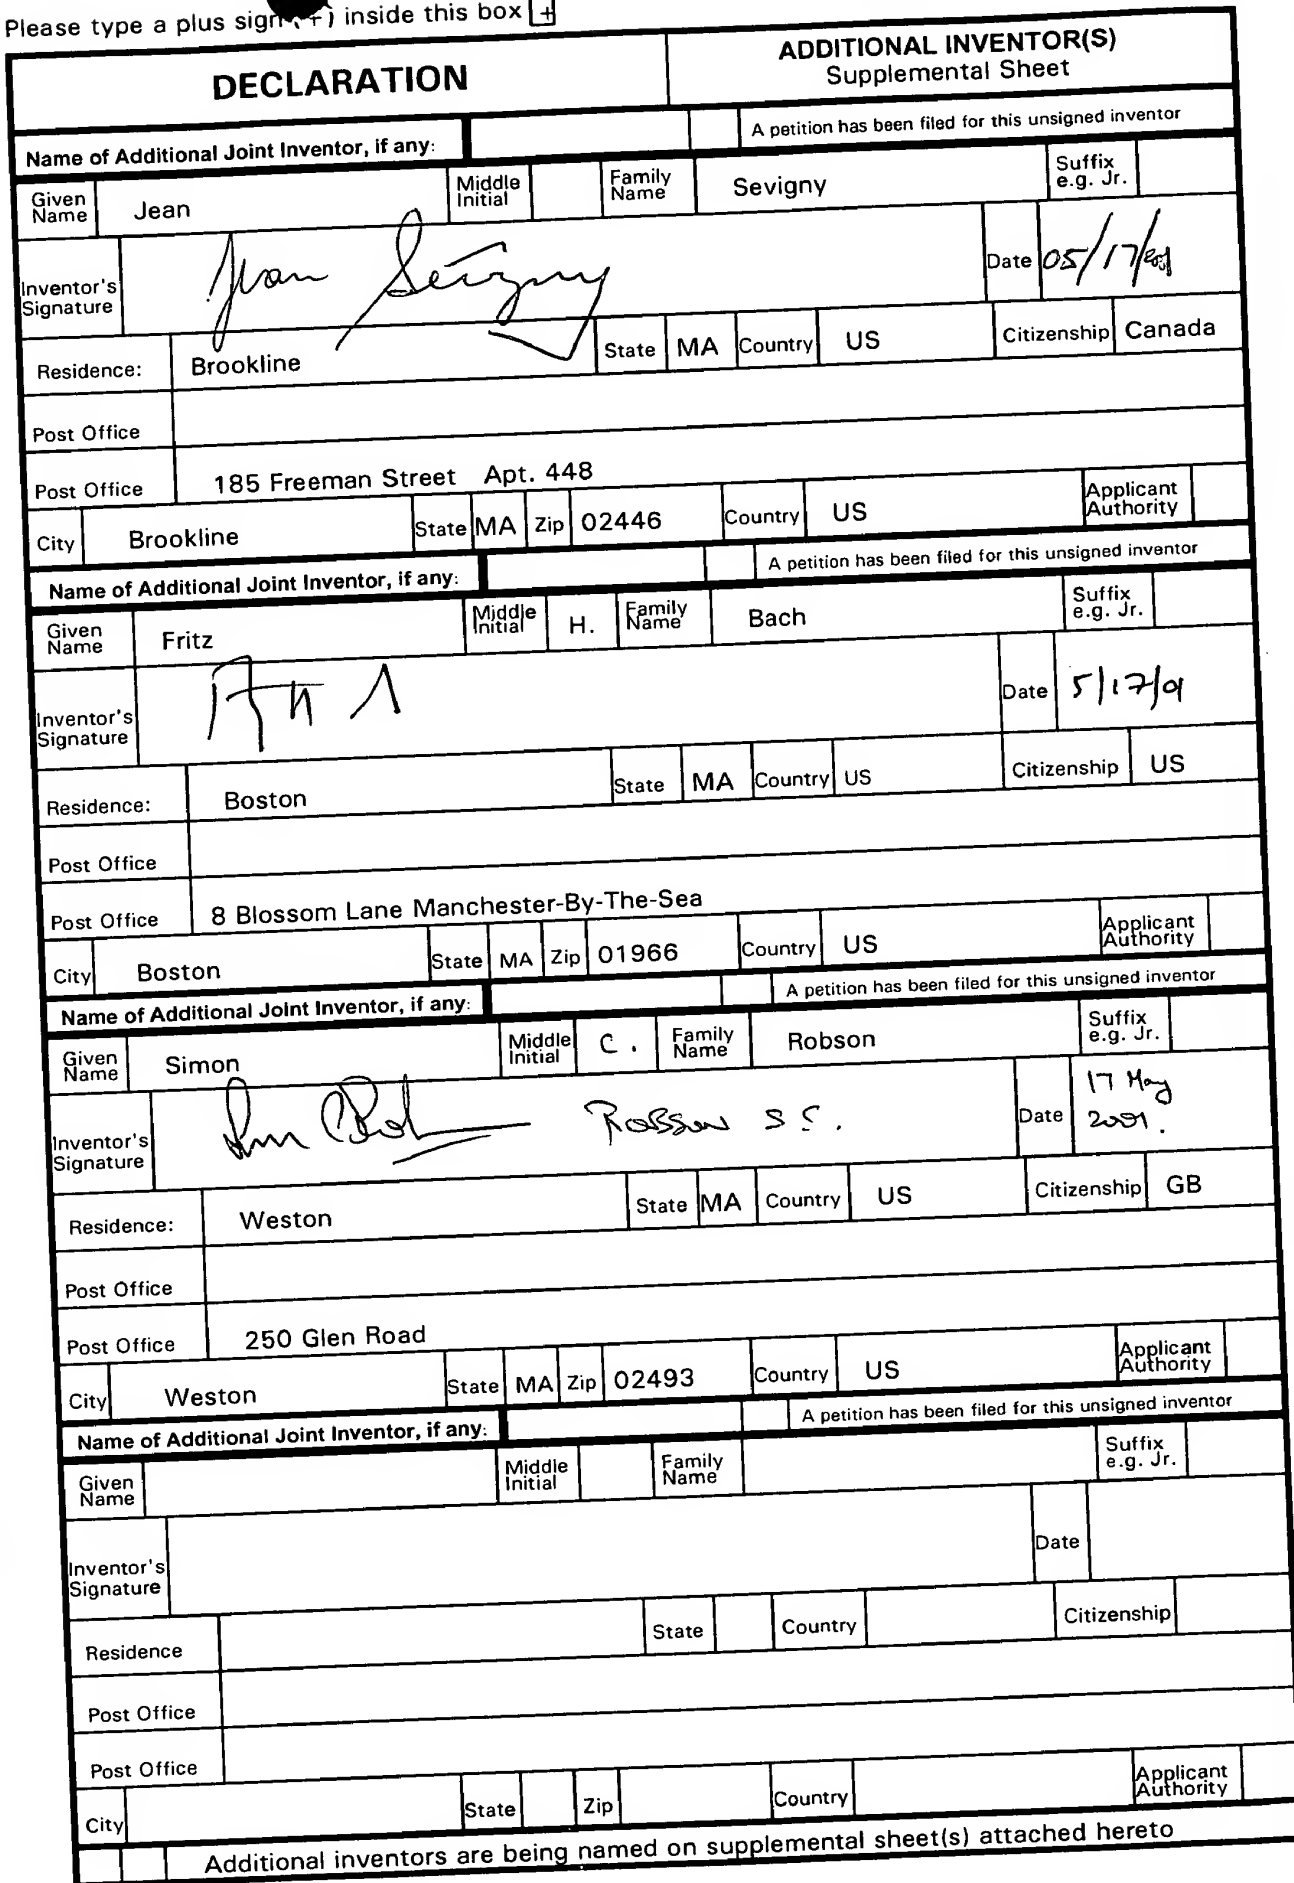 Please type a plus sign (+) inside this box +
DECLARATION ADDITIONAL INVENTOR(S)
Supplemental Sheet
Name of Additional Joint Inventor, if any: A petition has been filed for this unsigned inventor
Given Name Jean Middle Initial Family Name Sevigny Suffix e.g. Jr.
Inventor's Signature Jean Sévigny Date 05/17/2001
Residence: Brookline State MA Country US Citizenship Canada
Post Office
Post Office 185 Freeman Street Apt. 448
City Brookline State MA Zip 02446 Country US Applicant Authority
Name of Additional Joint Inventor, if any: A petition has been filed for this unsigned inventor
Given Name Fritz Middle Initial H. Family Name Bach Suffix e.g. Jr.
Inventor's Signature Date 5/17/01
Residence: Boston State MA Country US Citizenship US
Post Office
Post Office 8 Blossom Lane Manchester-By-The-Sea
City Boston State MA Zip 01966 Country US Applicant Authority
Name of Additional Joint Inventor, if any: A petition has been filed for this unsigned inventor
Given Name Simon Middle Initial C. Family Name Robson Suffix e.g. Jr.
Inventor's Signature Robson S.C. Date 17 May 2001.
Residence: Weston State MA Country US Citizenship GB
Post Office
Post Office 250 Glen Road
City Weston State MA Zip 02493 Country US Applicant Authority
Name of Additional Joint Inventor, if any: A petition has been filed for this unsigned inventor
Given Name Middle Initial Family Name Suffix e.g. Jr.
Inventor's Signature Date
Residence State Country Citizenship
Post Office
Post Office
City State Zip Country Applicant Authority
Additional inventors are being named on supplemental sheet(s) attached hereto